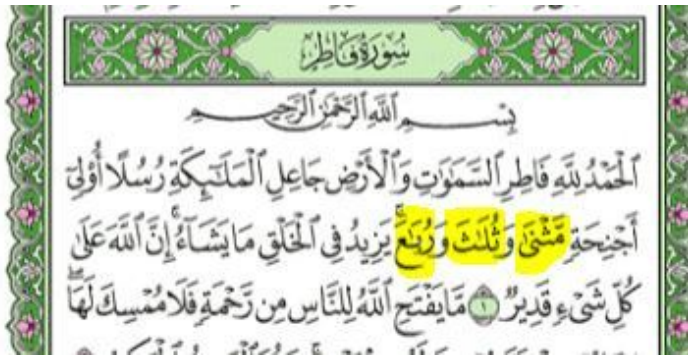 سُورَةُ فَاطِرٍ
بِسْمِ ٱللَّهِ ٱلرَّحْمَٰنِ ٱلرَّحِيمِ
ٱلْحَمْدُ لِلَّهِ فَاطِرِ ٱلسَّمَٰوَٰتِ وَٱلْأَرْضِ جَاعِلِ ٱلْمَلَٰٓئِكَةِ رُسُلًا أُو۟لِىٓ
أَجْنِحَةٍ مَّثْنَىٰ وَثُلَٰثَ وَرُبَٰعَ ۚ يَزِيدُ فِى ٱلْخَلْقِ مَا يَشَآءُ ۚ إِنَّ ٱللَّهَ عَلَىٰ
كُلِّ شَىْءٍ قَدِيرٌ ١ مَّا يَفْتَحِ ٱللَّهُ لِلنَّاسِ مِن رَّحْمَةٍ فَلَا مُمْسِكَ لَهَا ۖ